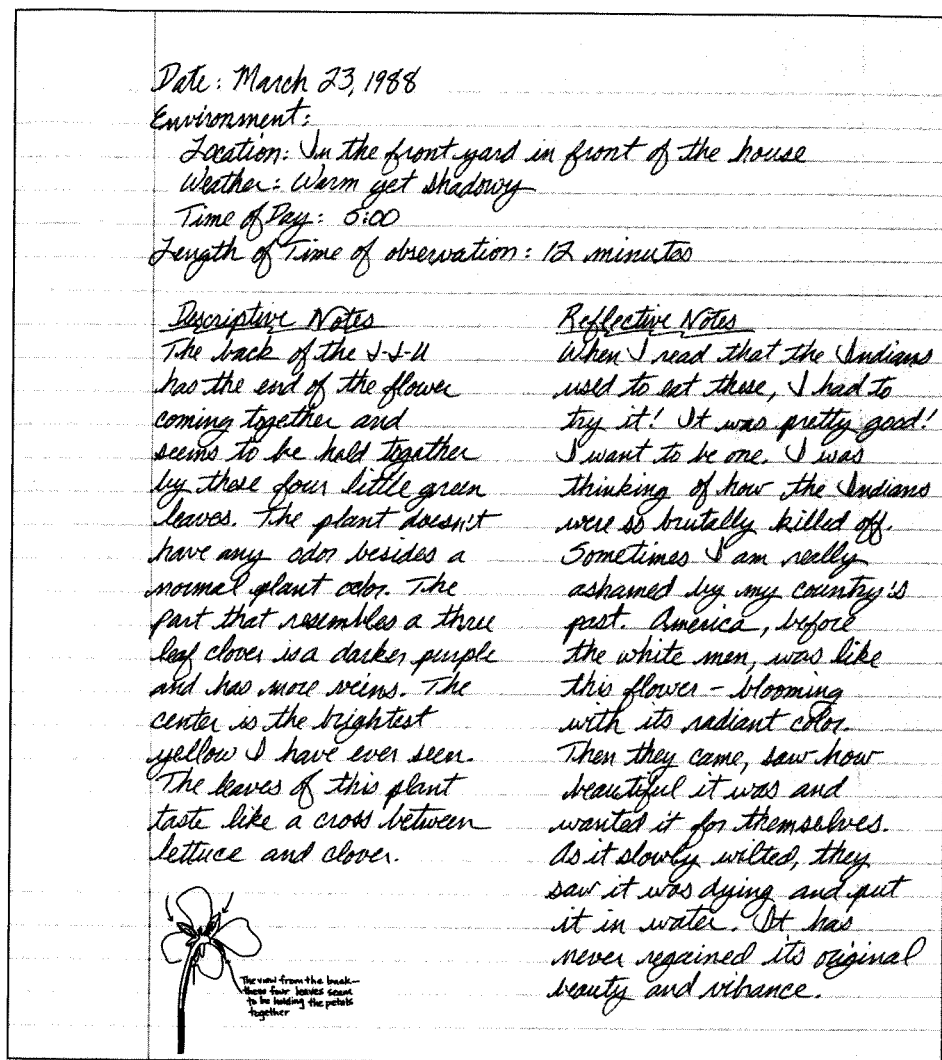 Date: March 23, 1988
Environment:
Location: In the front yard in front of the house
Weather: Warm yet shadowy
Time of Day: 5:00
Length of Time of observation: 12 minutes
Descriptive Notes
The back of the J-J-U
has the end of the flower
coming together and
seems to be held together
by these four little green
leaves. The plant doesn't
have any odor besides a
normal plant odor. The
part that resembles a three
leaf clover is a darker purple
and has more veins. The
center is the brightest
yellow I have ever seen.
The leaves of this plant
taste like a cross between
lettuce and clover.
The view from the back—
these four leaves seem
to be holding the petals
together
Reflective Notes
When I read that the Indians
used to eat these, I had to
try it! It was pretty good!
I want to be one. I was
thinking of how the Indians
were so brutally killed off.
Sometimes I am really
ashamed by my country's
past. America, before
the white men, was like
this flower - blooming
with its radiant color.
Then they came, saw how
beautiful it was and
wanted it for themselves.
As it slowly wilted, they
saw it was dying and put
it in water. It has
never regained its original
beauty and vibrance.